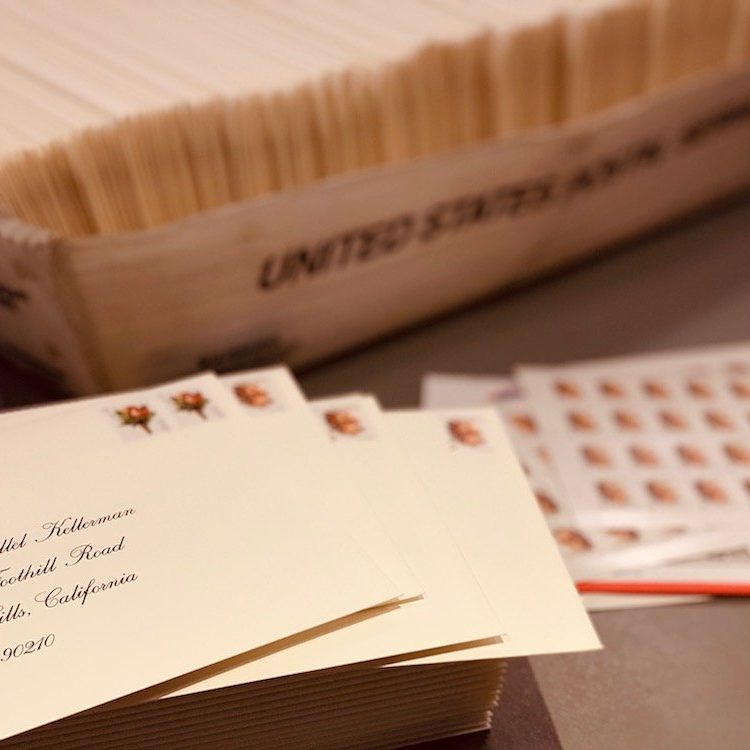 UNITED STATES POSTAL
Kellerman
Foothill Road
ills, California
90210